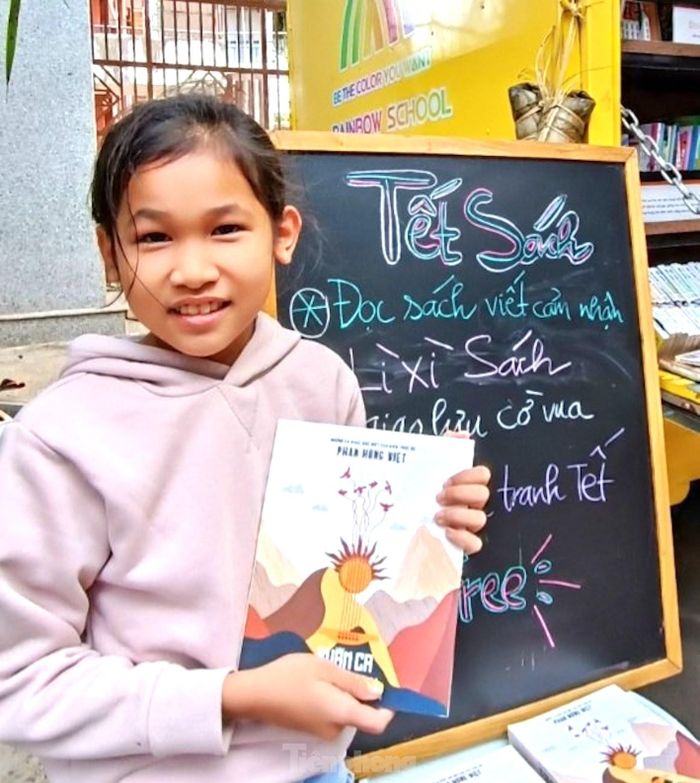 BE THE COLOR YOU WANT
RAINBOW SCHOOL
Tết Sách
Đọc sách viết cảm nhận
Lì xì Sách
giao lưu cờ vua
tranh Tết
Free
PHAN HỒNG VIỆT
XUÂN CA
PHAN HỒNG VIỆT
Tiền Phong